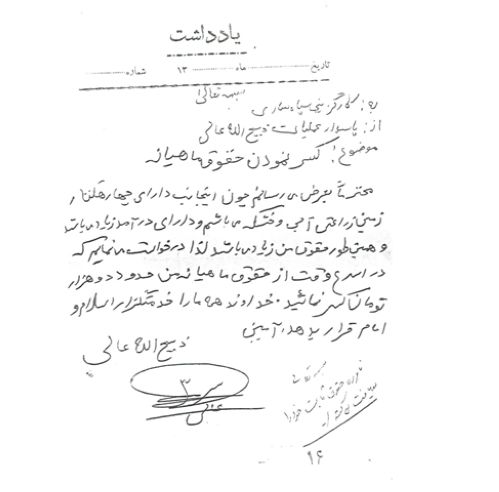 یادداشت
تاریخ ........ ماه ........ ۱۳ شماره ........
بسمه تعالی
به: کارگزینی سپاه ساری
از: پاسدار عملیات ذبیح الله عالی
موضوع: کسر نمودن حقوق ماهیانه
محترماً بعرض می رسانم چون اینجانب دارای چهار هکتار
زمین زراعتی آبی و خشکه می باشم و دارای درآمد زیاد می باشد
و همین طور حقوق من زیاد می باشد لذا درخواست می نمایم که
در اسرع وقت از حقوق ماهیانه من حدود دو هزار
تومان کسر نمائید. خداوند همه ما را خدمتگزار اسلام و
امام قرار بدهد، آمین
ذبیح الله عالی
بسمه تعالی
۱۶